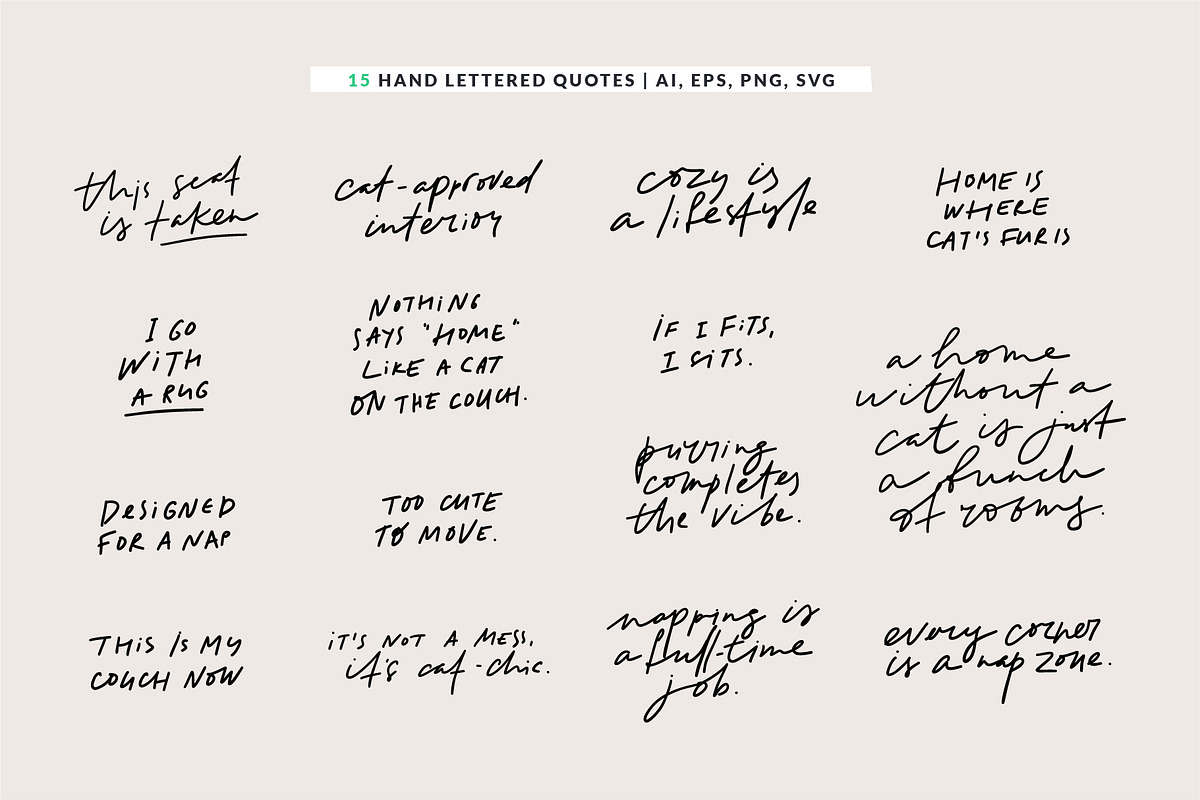 15 HAND LETTERED QUOTES | AI, EPS, PNG, SVG
this seat
is taken
cat-approved
interior
cozy is
a lifestyle
HOME IS
WHERE
CAT'S FUR IS
I GO
WITH
A RUG
NOTHING
SAYS "HOME"
LIKE A CAT
ON THE COUCH.
IF I FITS,
I SITS.
a home
without a
cat is just
a bunch
of rooms.
purring
completes
the vibe.
DESIGNED
FOR A NAP
TOO CUTE
TO MOVE.
THIS IS MY
COUCH NOW
IT'S NOT A MESS,
it's cat-chic.
napping is
a full-time
job.
every corner
is a nap zone.